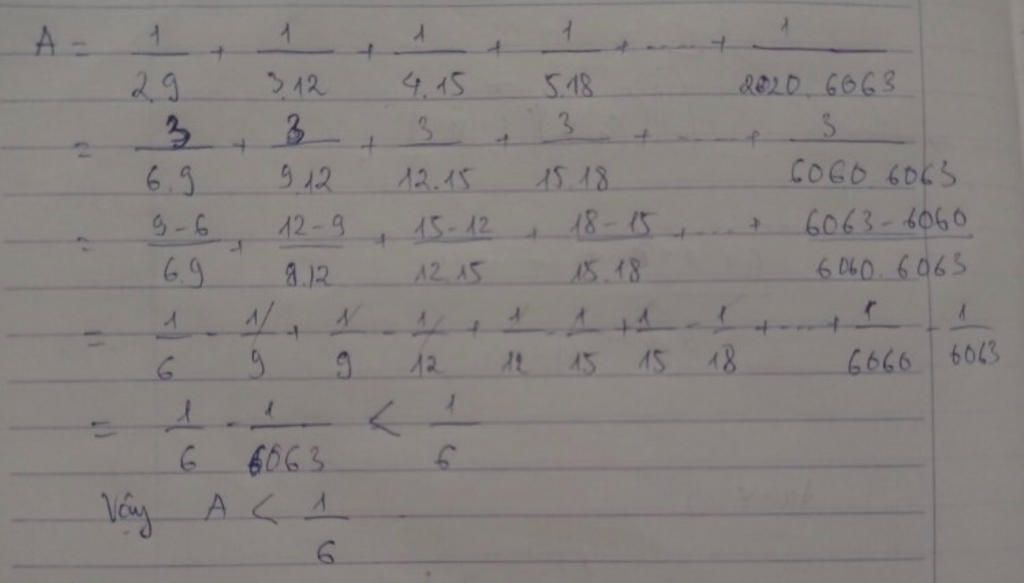 A = 1/2.9 + 1/3.12 + 1/4.15 + 1/5.18 + ..... + 1/2020.6063
= 3/6.9 + 3/9.12 + 3/12.15 + 3/15.18 + ..... + 3/6060.6063
= 9-6/6.9 + 12-9/9.12 + 15-12/12.15 + 18-15/15.18 + ..... + 6063-6060/6060.6063
= 1/6 - 1/9 + 1/9 - 1/12 + 1/12 - 1/15 + 1/15 - 1/18 + ..... + 1/6060 - 1/6063
= 1/6 - 1/6063 < 1/6
Vậy A < 1/6